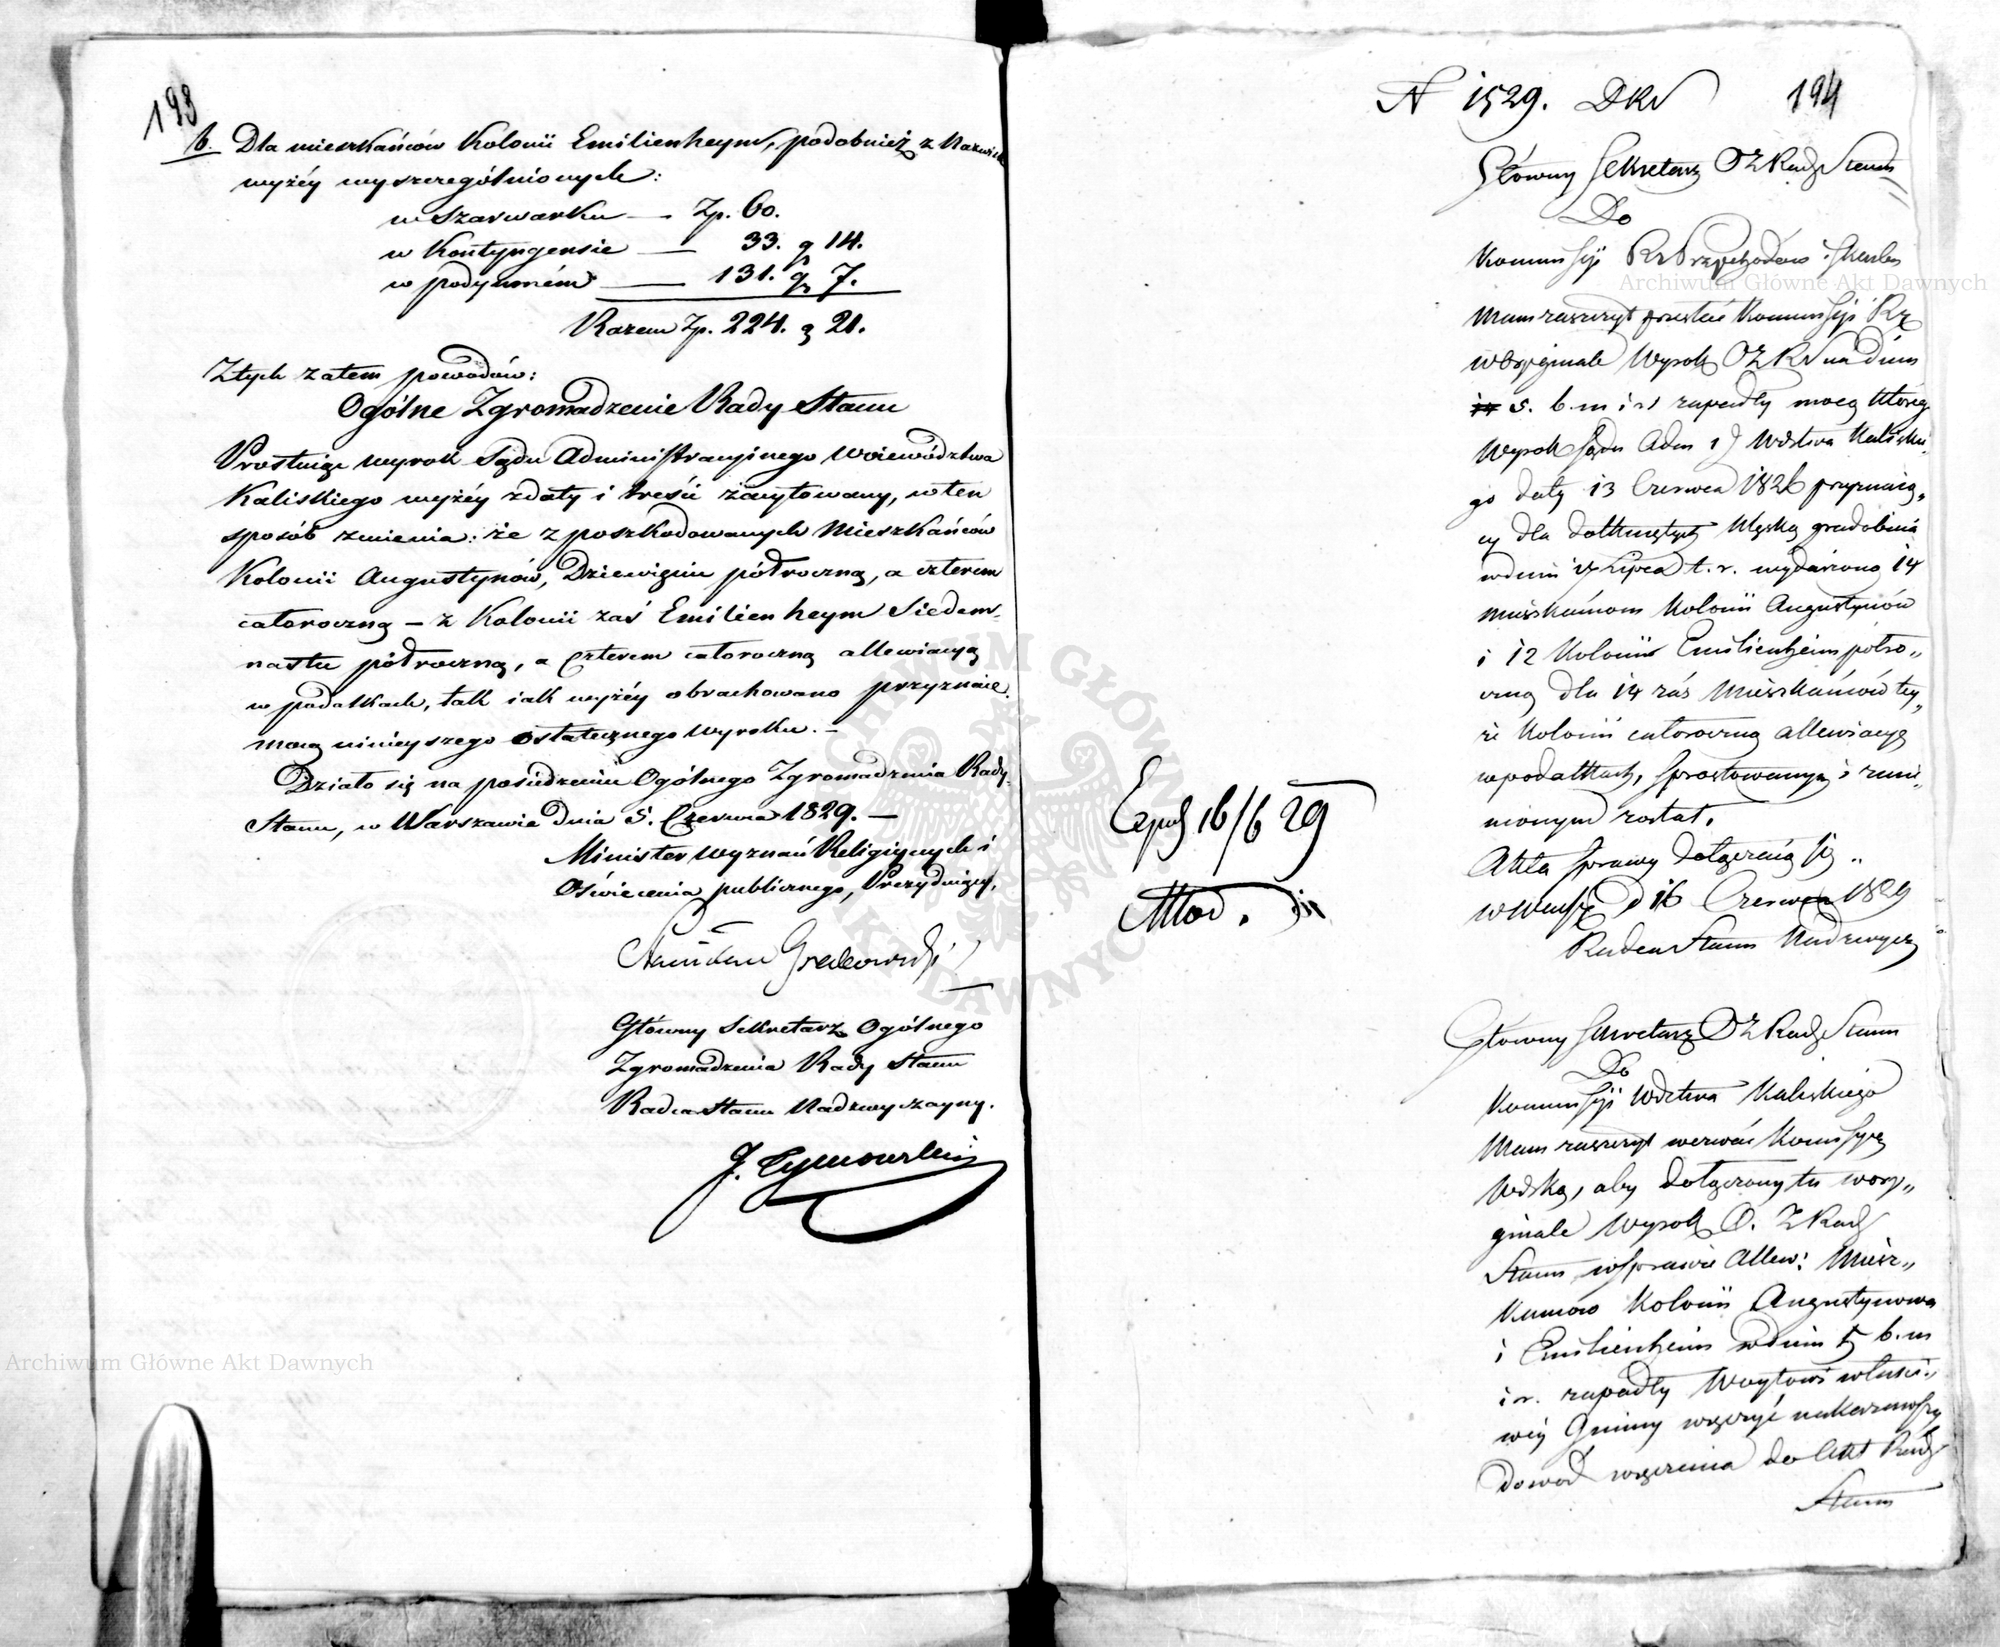 193
b. Dla mieszkańców Kolonii Emilienheym, podobnież z Nazwisk
wyżéy wyszczególnionych:
w szarwarku — Zp. 60.
w Kontyngensie — 33. g 14.
w podymném — 131. g 7.
Razem Zp. 224. g 21.
Z tych zatem powodów:
Ogólne Zgromadzenie Rady Stanu
Prostuiąc wyrok Sądu Administracyinego Woiewództwa
Kaliskiego wyżéy z daty i treści zacytowany, w ten
sposób zmienia: że z poszkodowanych Mieszkańców
Kolonii Augustynów, Dziewięciu półroczną, a czterem
całoroczną — z Kolonii zaś Emilienheym Siedem-
nastu półroczną, a Czterem całoroczną allewiacyą
w podatkach, tak iak wyżéy obrachowano przyznaie.
mocą ninieyszego ostatecznego wyroku. —
Działo się na posiedzeniu Ogólnego Zgromadzenia Rady
Stanu, w Warszawie Dnia 5. Czerwca 1829. —
Minister Wyznań Religiynych i
Oświecenia publicznego, Prezyduiący,
Stanisław Grabowski
Główny Sekretarz Ogólnego
Zgromadzenia Rady Stanu
Radca Stanu Nadzwyczayny.
J. Tymowski
N 1529. DKW 194
Główny Sekretarz OZ Rady Stanu
Do
Kommissyi Rz Przychodów i Skarbu
Mam zaszczyt przesłać Kommissyi Rz
w Oryginale Wyrok OZ RS na dniu
5. b. m i r zapadły mocą którego
Wyrok Sądu Adm Wdztwa Kaliskie
go daty 13 Czerwca 1826 przyznaią„
cy dla dotkniętych klęską gradobicia
w dniu Lipca t. r. wydarzoną 14
Mieszkańcom Kolonii Augustynów
i 12 Kolonii Emilienheim półro„
czną dla 14 zaś Mieszkańców tey„
że Kolonii całoroczną allewiacyą
w podatkach, sprostowanym i zmie„
nionym został.
Akta sprawy dołączaią się „
w Warsz d 16 Czerwca 1829
Radca Stanu Nadzwycz
Exped 16/6 29
Główny Sekretarz OZ Rady Stanu
Do
Kommissyi Wdztwa Kaliskiego
Mam zaszczyt wezwać Komissyą
Wdzką, aby dołączony tu w ory„
ginale Wyrok O. Z Rady
Stanu w sprawie Allew: Miesz„
kanców Kolonii Augustynowa
i Emilienheim w dniu 5 b. m
i r. zapadły Woytowi właści„
wéy Gminy wręczyć nakazawszy
dowód wręczenia do Akt Rady
Stanu
Archiwum Główne Akt Dawnych
Archiwum Główne Akt Dawnych
ARCHIWUM GŁÓWNE AKT DAWNYCH